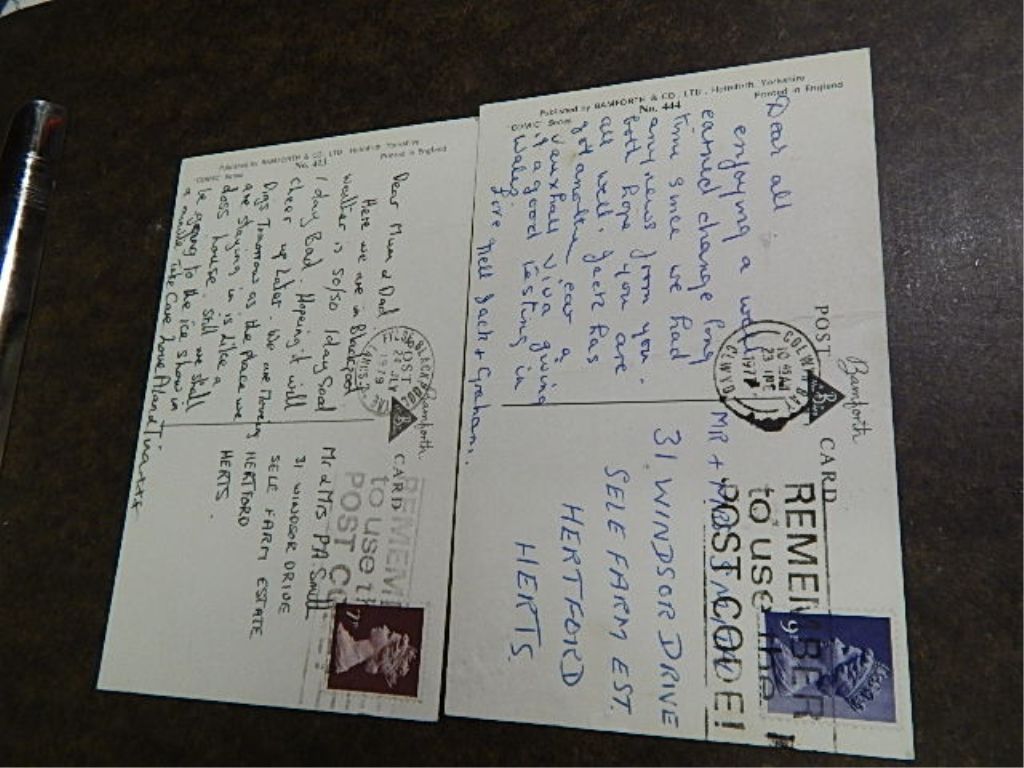 Published by BAMFORTH & CO., LTD., Holmfirth, Yorkshire
"COMIC" Series
No. 423
Printed in England
Dear Mum & Dad
Here we are in Blackpool
weather is 50/50 1 day Good
1 day Bad. Hoping it will
cheer up Later. We are Moving
Digs Tomorrow as the place we
are staying in is like a
doss house. Still we shall
be going to the ice show in
a minute Take Care Love Alan & Tina
POST CARD
Bamforth
BLACKPOOL
1979
REMEMBER
to use the
POST CODE
7P
Mr & Mrs P.A. Smith
31 WINDSOR DRIVE
SELE FARM ESTATE
HERTFORD
HERTS.
Published by BAMFORTH & CO., LTD., Holmfirth, Yorkshire
"COMIC" Series
No. 444
Printed in England
Dear all
enjoying a well
earned change long
time since we had
any news from you.
both hope you are
all well, Jack has
got another car a
Vauxhall Viva giving
it a good testing in
Wales
Love Nell Jack + Graham.
POST CARD
Bamforth
COLWYN BAY
10 45 AM
CLWYD
REMEMBER
to use the
POST CODE!
9P
MR +
31 WINDSOR DRIVE
SELE FARM EST.
HERTFORD
HERTS.